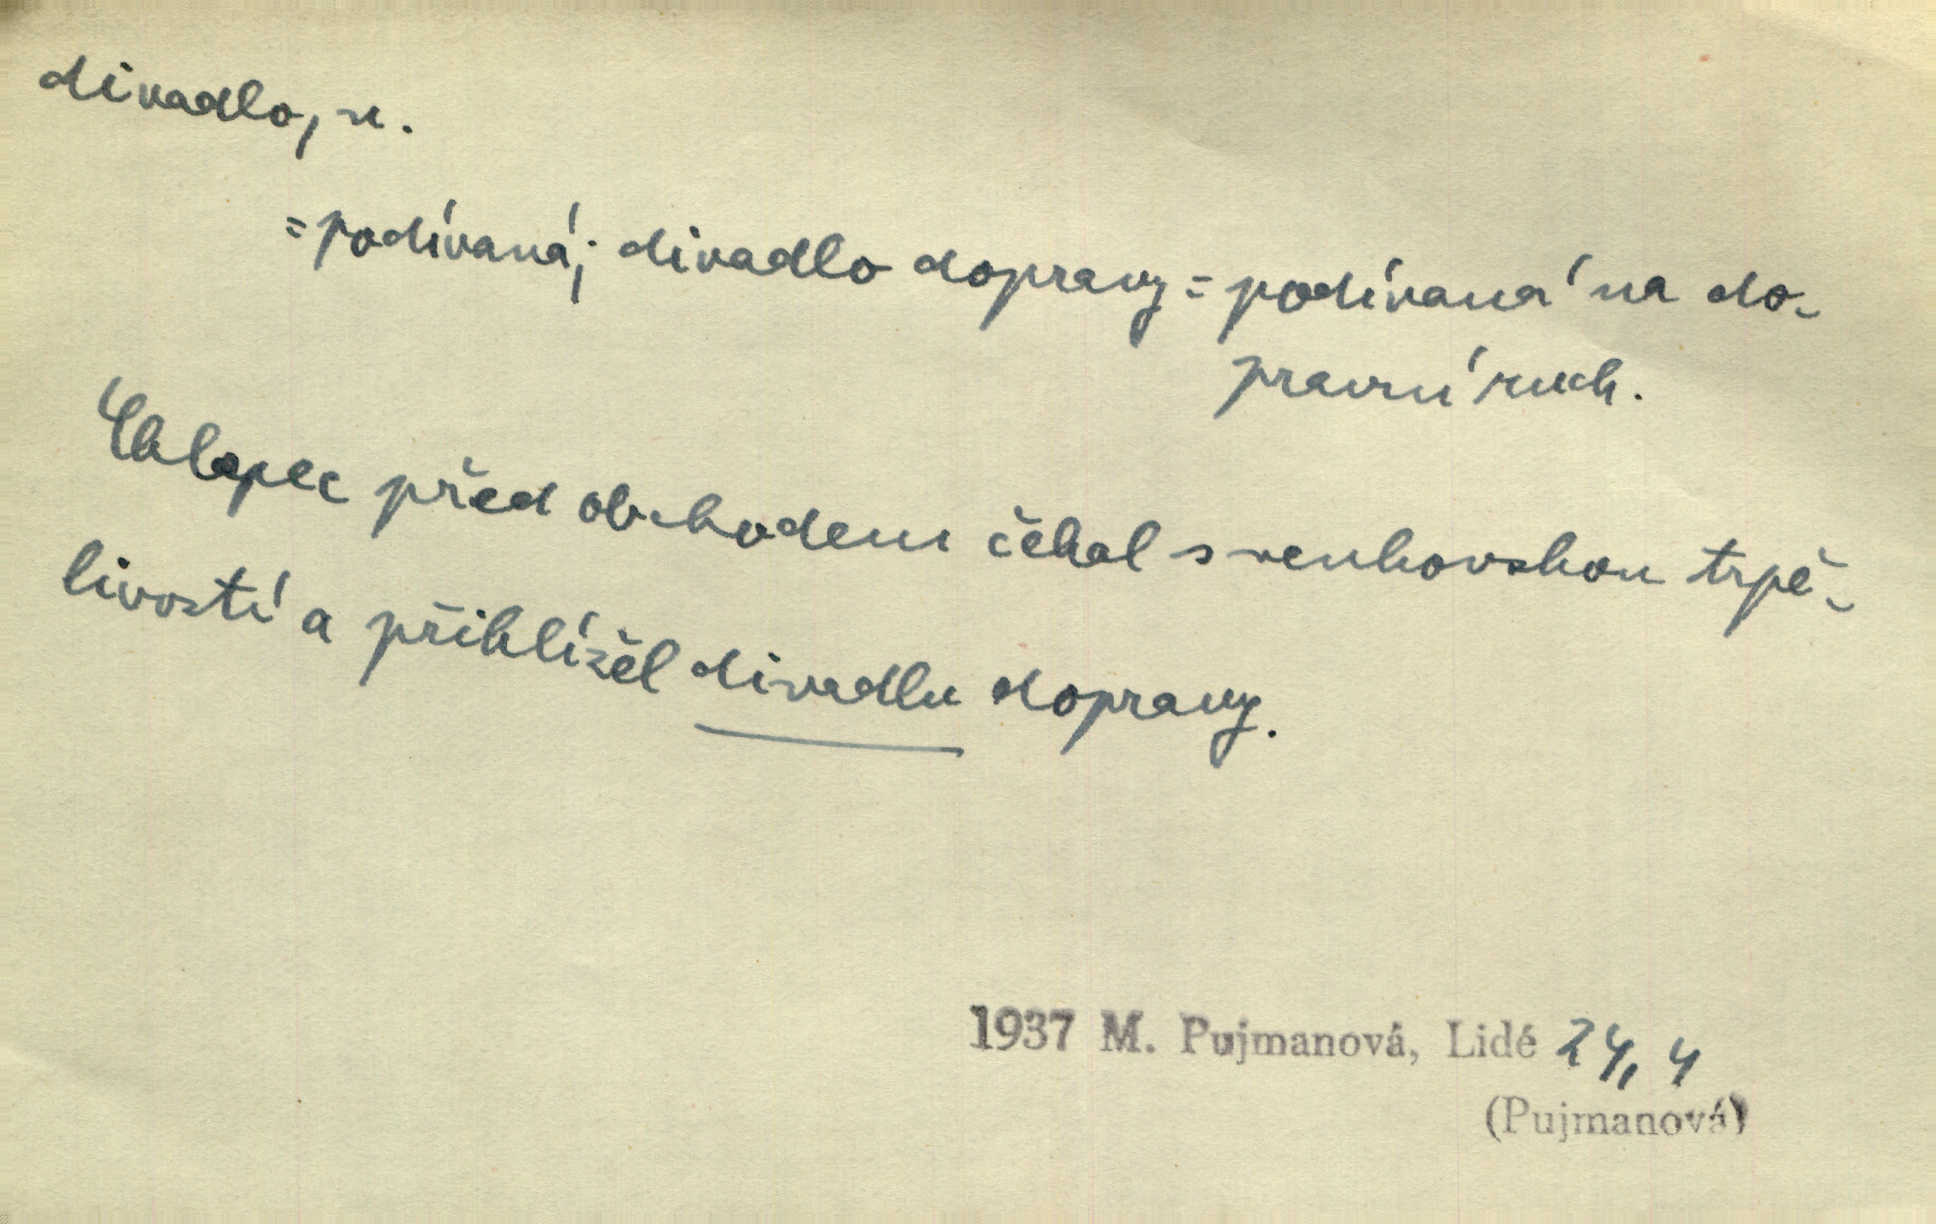 divadlo, n.
= podívaná; divadlo dopravy = podívaná na do-
pravní ruch.
Chlapec před obchodem čekal s venkovskou trpě-
livostí a přihlížel divadlu dopravy.
1937 M. Pujmanová, Lidé 24, 4
(Pujmanová)